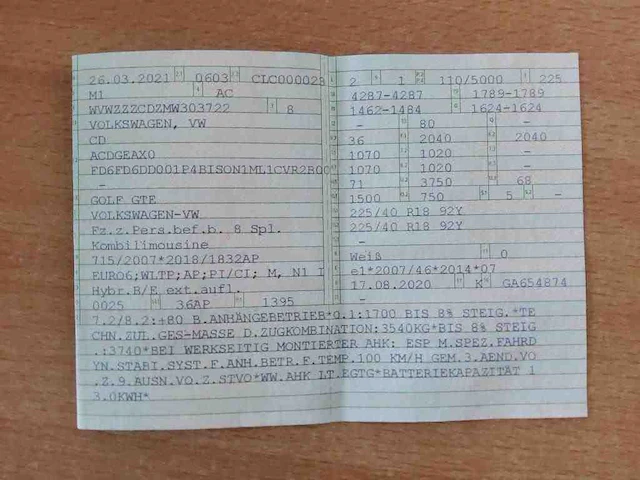 26.03.2021 0603 CLC000023
M1 AC
WVWZZZCDZMW303722 8
VOLKSWAGEN, VW
CD
ACDGEAX0
FD6FD6DD001P4BISON1ML1CVR2B00
-
GOLF GTE
VOLKSWAGEN-VW
Fz.z.Pers.bef.b. 8 Spl.
Kombilimousine
715/2007*2018/1832AP
EURO6;WLTP;AP;PI/CI; M, N1 I
Hybr.B/E ext.aufl.
0025 36AP 1395
2 1 110/5000 225
4287-4287 1789-1789
1462-1484 1624-1624
- 80 -
36 2040 2040
1070 1020 -
1070 1020 -
71 3750 68
1500 750 5 -
225/40 R18 92Y
225/40 R18 92Y
-
Weiß 0
e1*2007/46*2014*07
17.08.2020 K GA654874
-
7.2/8.2:+80 B.ANHÄNGEBETRIEB*O.1:1700 BIS 8% STEIG.*TE
CHN.ZUL.GES-MASSE D.ZUGKOMBINATION:3540KG*BIS 8% STEIG
.:3740*BEI WERKSEITIG MONTIERTER AHK: ESP M.SPEZ.FAHRD
YN.STABI.SYST.F.ANH.BETR.F.TEMP.100 KM/H GEM.3.AEND.VO
.Z.9.AUSN.VO.Z.STVO*WW.AHK LT.EGTG*BATTERIEKAPAZITÄT 1
3.0KWH*